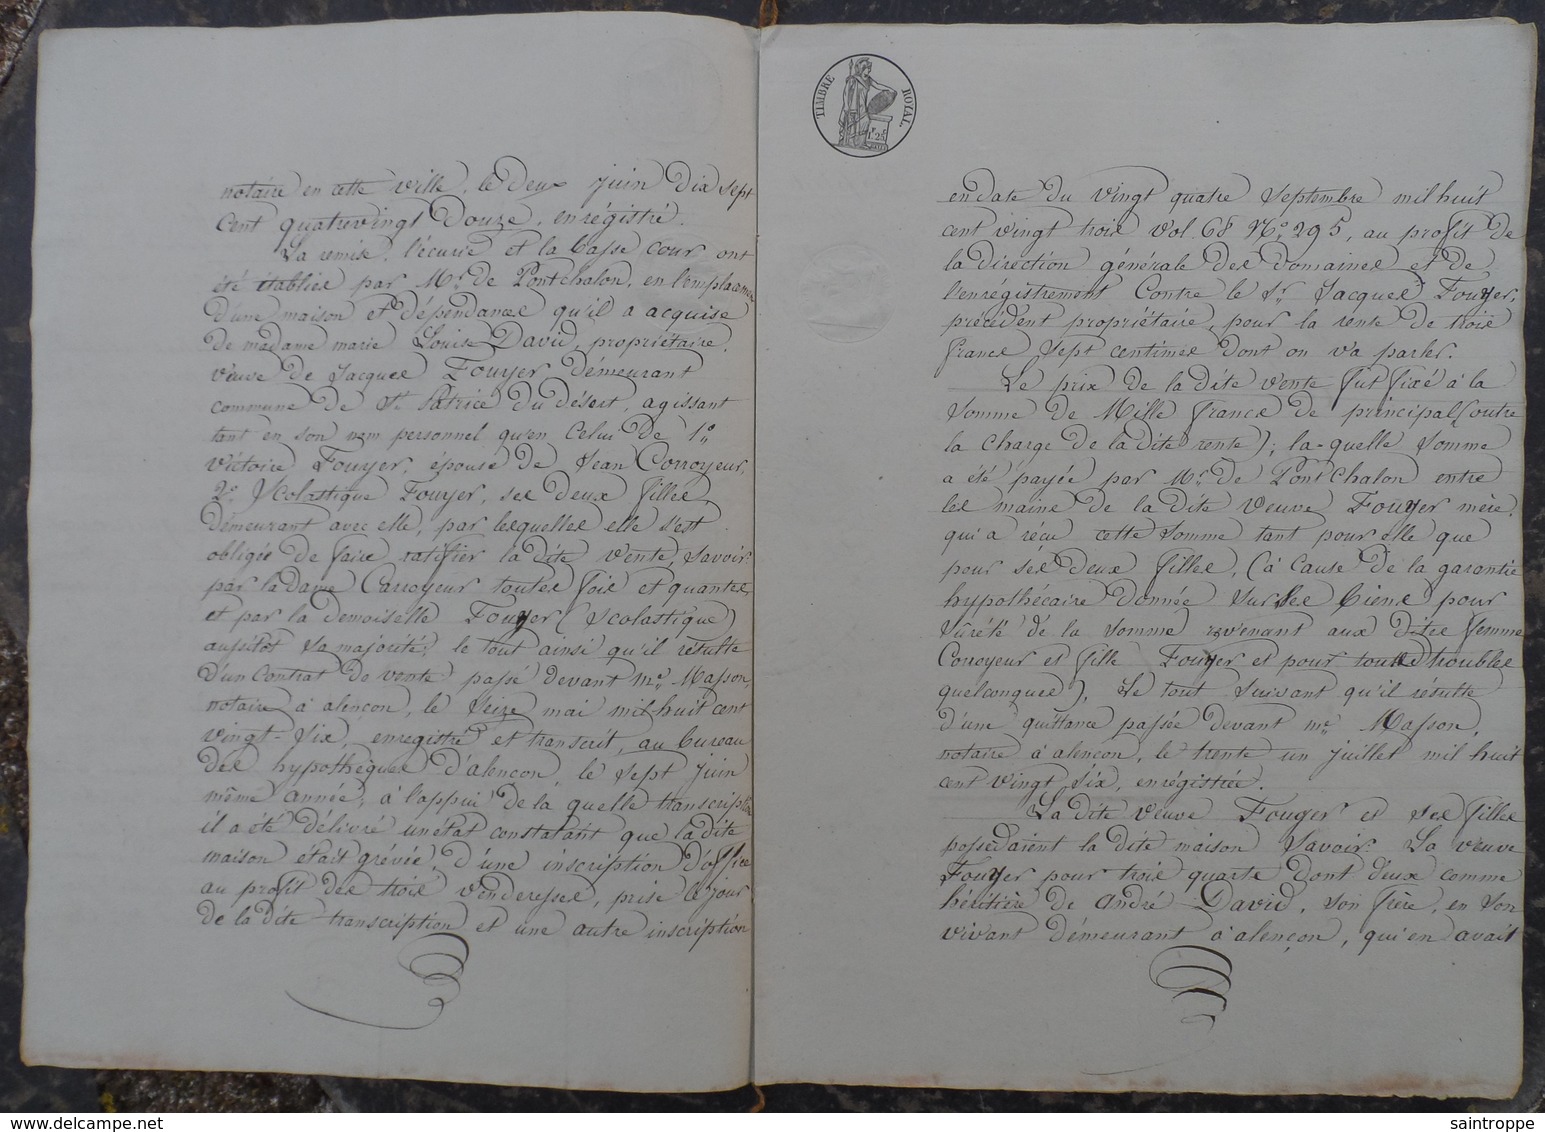 notaire en cette ville, le deux juin dix sept
cent quatrevingt douze, enrégistré.
La remise, l'écurie et la basse cour ont
été établies par Mr. de Pontchalon, en l'emplacement
d'une maison et dépendances qu'il a acquise
de madame marie Louise David, propriétaire,
veuve de Jacques Fouyer demeurant
commune de St. Patrice du désert, agissant
tant en son nom personnel qu'en celui de 1o.
victoire Fouyer, épouse de Jean Corroyeur,
2o. Scolastique Fouyer, ses deux filles
démeurant avec elle, par lesquelles elle s'est
obligée de faire ratifier la dite vente, savoir:
par la dame Corroyeur toutes fois et quantes,
et par la demoiselle Fouyer (Scolastique)
aussitôt sa majorité; le tout ainsi qu'il résulte
d'un contrat de vente passé devant me. Masson,
notaire à alençon, le seize mai mil huit cent
vingt-six, enregistré et transcrit, au bureau
des hypothèques d'alençon, le sept juin
même année, à l'appui de la quelle transcription
il a été délivré un état constatant que la dite
maison était grévée, d'une inscription d'office
au profit des trois venderesses, prise le jour
de la dite transcription et une autre inscription
TIMBRE ROYAL.
1f. 25c
en date du vingt quatre septembre mil huit
cent vingt trois vol. 68 No. 295, au profit de
la direction générale des domaines et de
l'enrégistrement contre le Sr. Jacques Fouyer,
précédent propriétaire, pour la rente de trois
francs sept centimes dont on va parler.
Le prix de la dite vente fut fixé à la
somme de Mille francs de principal (outre
la charge de la dite rente); la-quelle somme
a été payée par Mr. de Pontchalon entre
les mains de la dite veuve Fouyer mère,
qui a réçu cette somme tant pour elle que
pour ses deux filles, (à cause de la garantie
hypothécaire donnée sur ses biens pour
sûreté de la somme revenant aux dites femme
Corroyeur et fille Fouyer et pour tous troubles
quelconques), Le tout suivant qu'il résulte
d'une quittance passée devant me. Masson,
notaire à alençon, le trente un juillet mil huit
cent vingt six, enrégistrée.
La dite veuve Fouyer et ses filles
possédaient la dite maison Savoir: La veuve
Fouyer pour trois quarts dont deux comme
héritière de andré David, son frère, en son
vivant démeurant à alençon, qui en avait
saintroppe